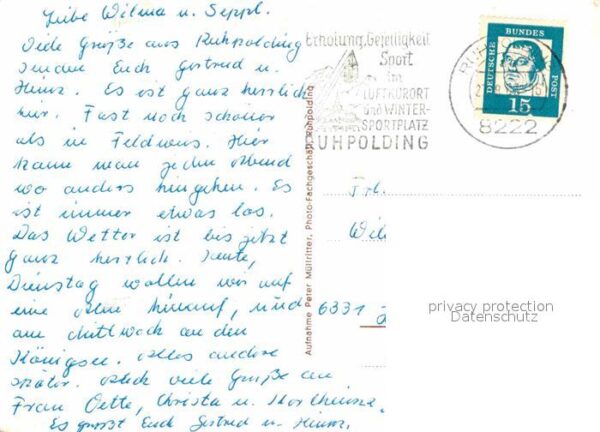 Liebe Wilma u. Seppl.
Viele Grüße aus Ruhpolding
senden Euch Gertrud u.
Heinz. Es ist ganz herrlich
hier. Fast noch schöner
als in Feldwies. Hier
kann man jeden Abend
wo anders hingehen. Es
ist immer etwas los.
Das Wetter ist bis jetzt
ganz herrlich. Heute,
Dienstag wollen wir auf
eine Alm hinauf, und
am Mittwoch an den
Königsee. Alles andere
später. Auch viele Grüße an
Frau Oette, Christa u. Karlheinz.
Es grüsst Euch Gertrud u. Heinz.
Aufnahme Peter Müllritter, Photo-Fachgeschäft, Ruhpolding
Erholung, Geselligkeit
Sport
im
LUFTKURORT
und WINTER-
SPORTPLATZ
RUHPOLDING
8222
DEUTSCHE BUNDESPOST
15
Frl.
Wil
6331
privacy protection
Datenschutz